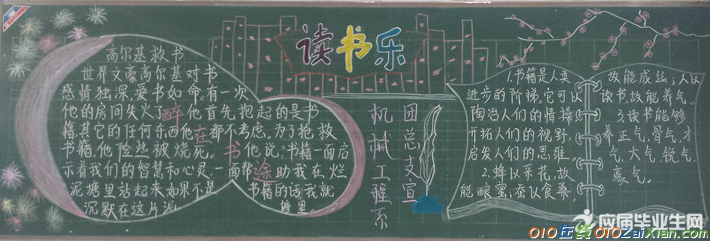 读书乐
高尔基救书
世界文豪高尔基对书
感情独深,爱书如命,有一次
他的房间失火了醉他首先抱起的是书
籍,其它的任何东西他在都不考虑,为了抢救
书籍,他险些被烧死。书他说:"书籍一面启
示着我们的智慧和心灵,一面帮涂助我在烂
泥塘里站起来如果不是书籍的话我就
沉默在这片泥塘里
团总支宣
机械工程系
1.书籍是人类
进步的阶梯,它可以
陶冶人们的情操
开拓人们的视野,
启发人们的思维
2.蜂以采花,故
能酿蜜,蚕以食桑,
故能成丝;人以
读书,故能养气。
3.读书能够
养正气,骨气,才
气,大气,锐气,
豪气。
应届毕业生网
010在线010ZaiXian.com